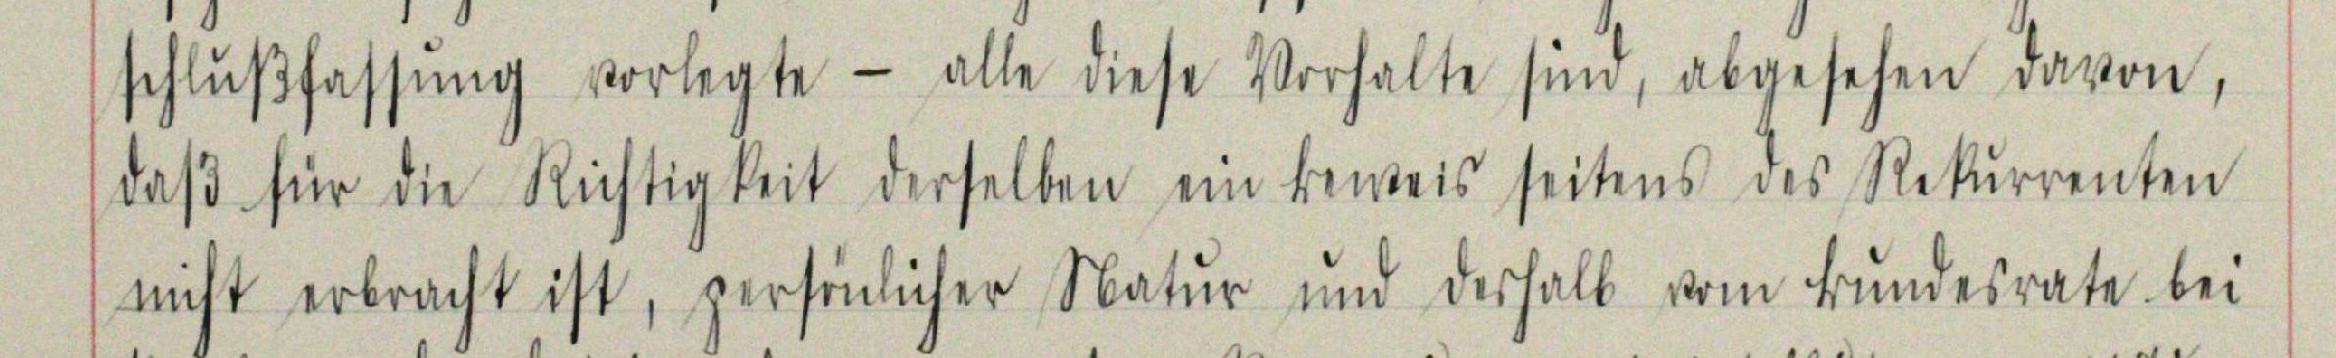 schlußfassung vorlegte – alle diese Vorhalte sind, abgesehen davon,
daß für die Richtigkeit derselben ein Beweis seitens des Rekurrenten
nicht erbracht ist, persönlicher Natur und deshalb vom Bundesrate bei